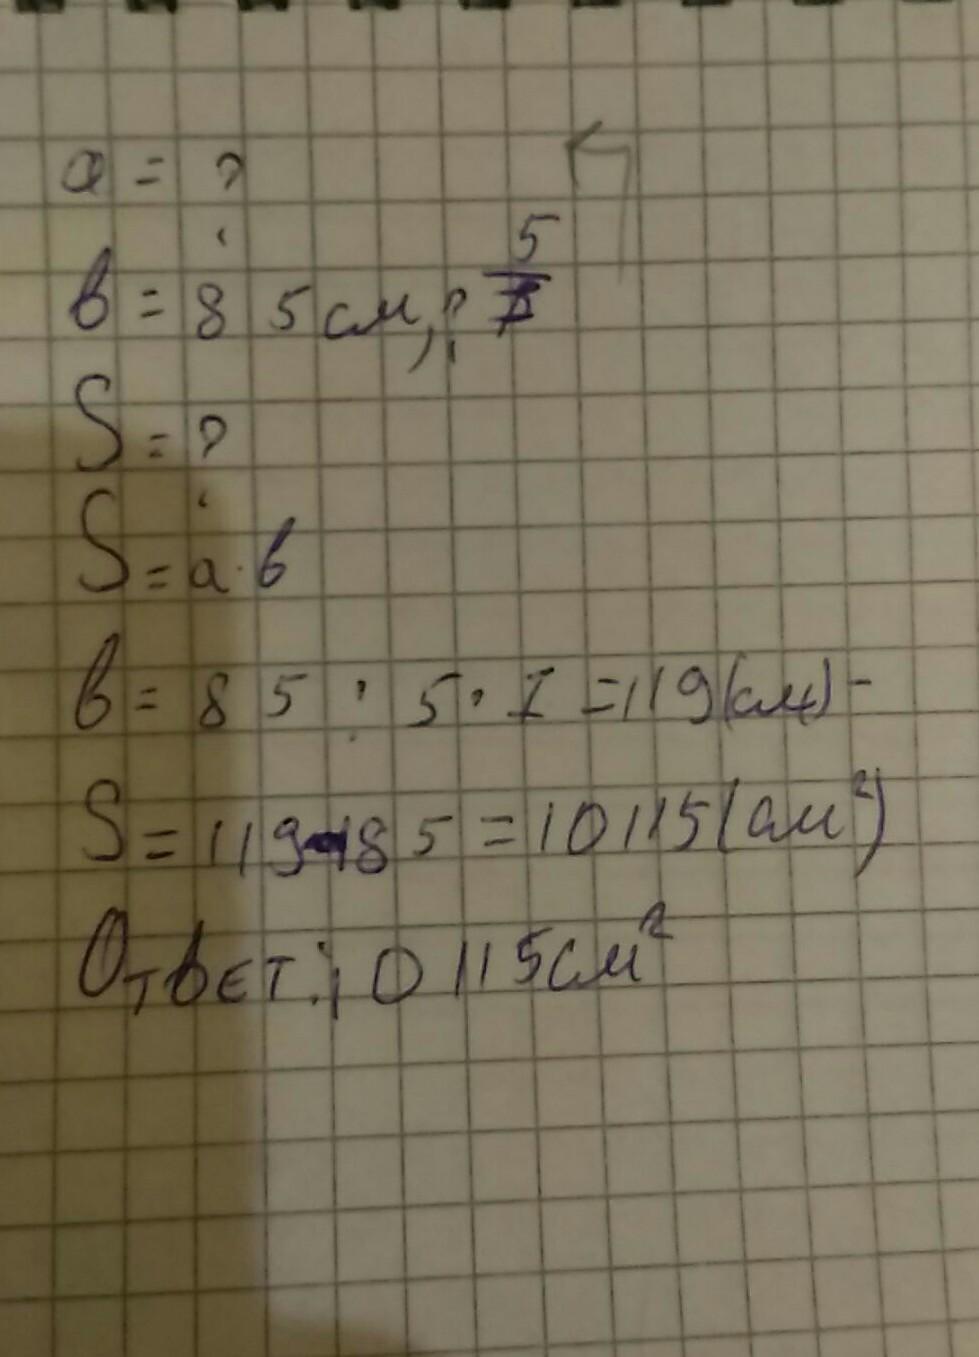 a = ?
в = 85см, ? 5/7
S = ?
S = a · в
в = 85 : 5 · 7 = 119(см) -
S = 119 · 85 = 10115(см²)
Ответ: 10115см²